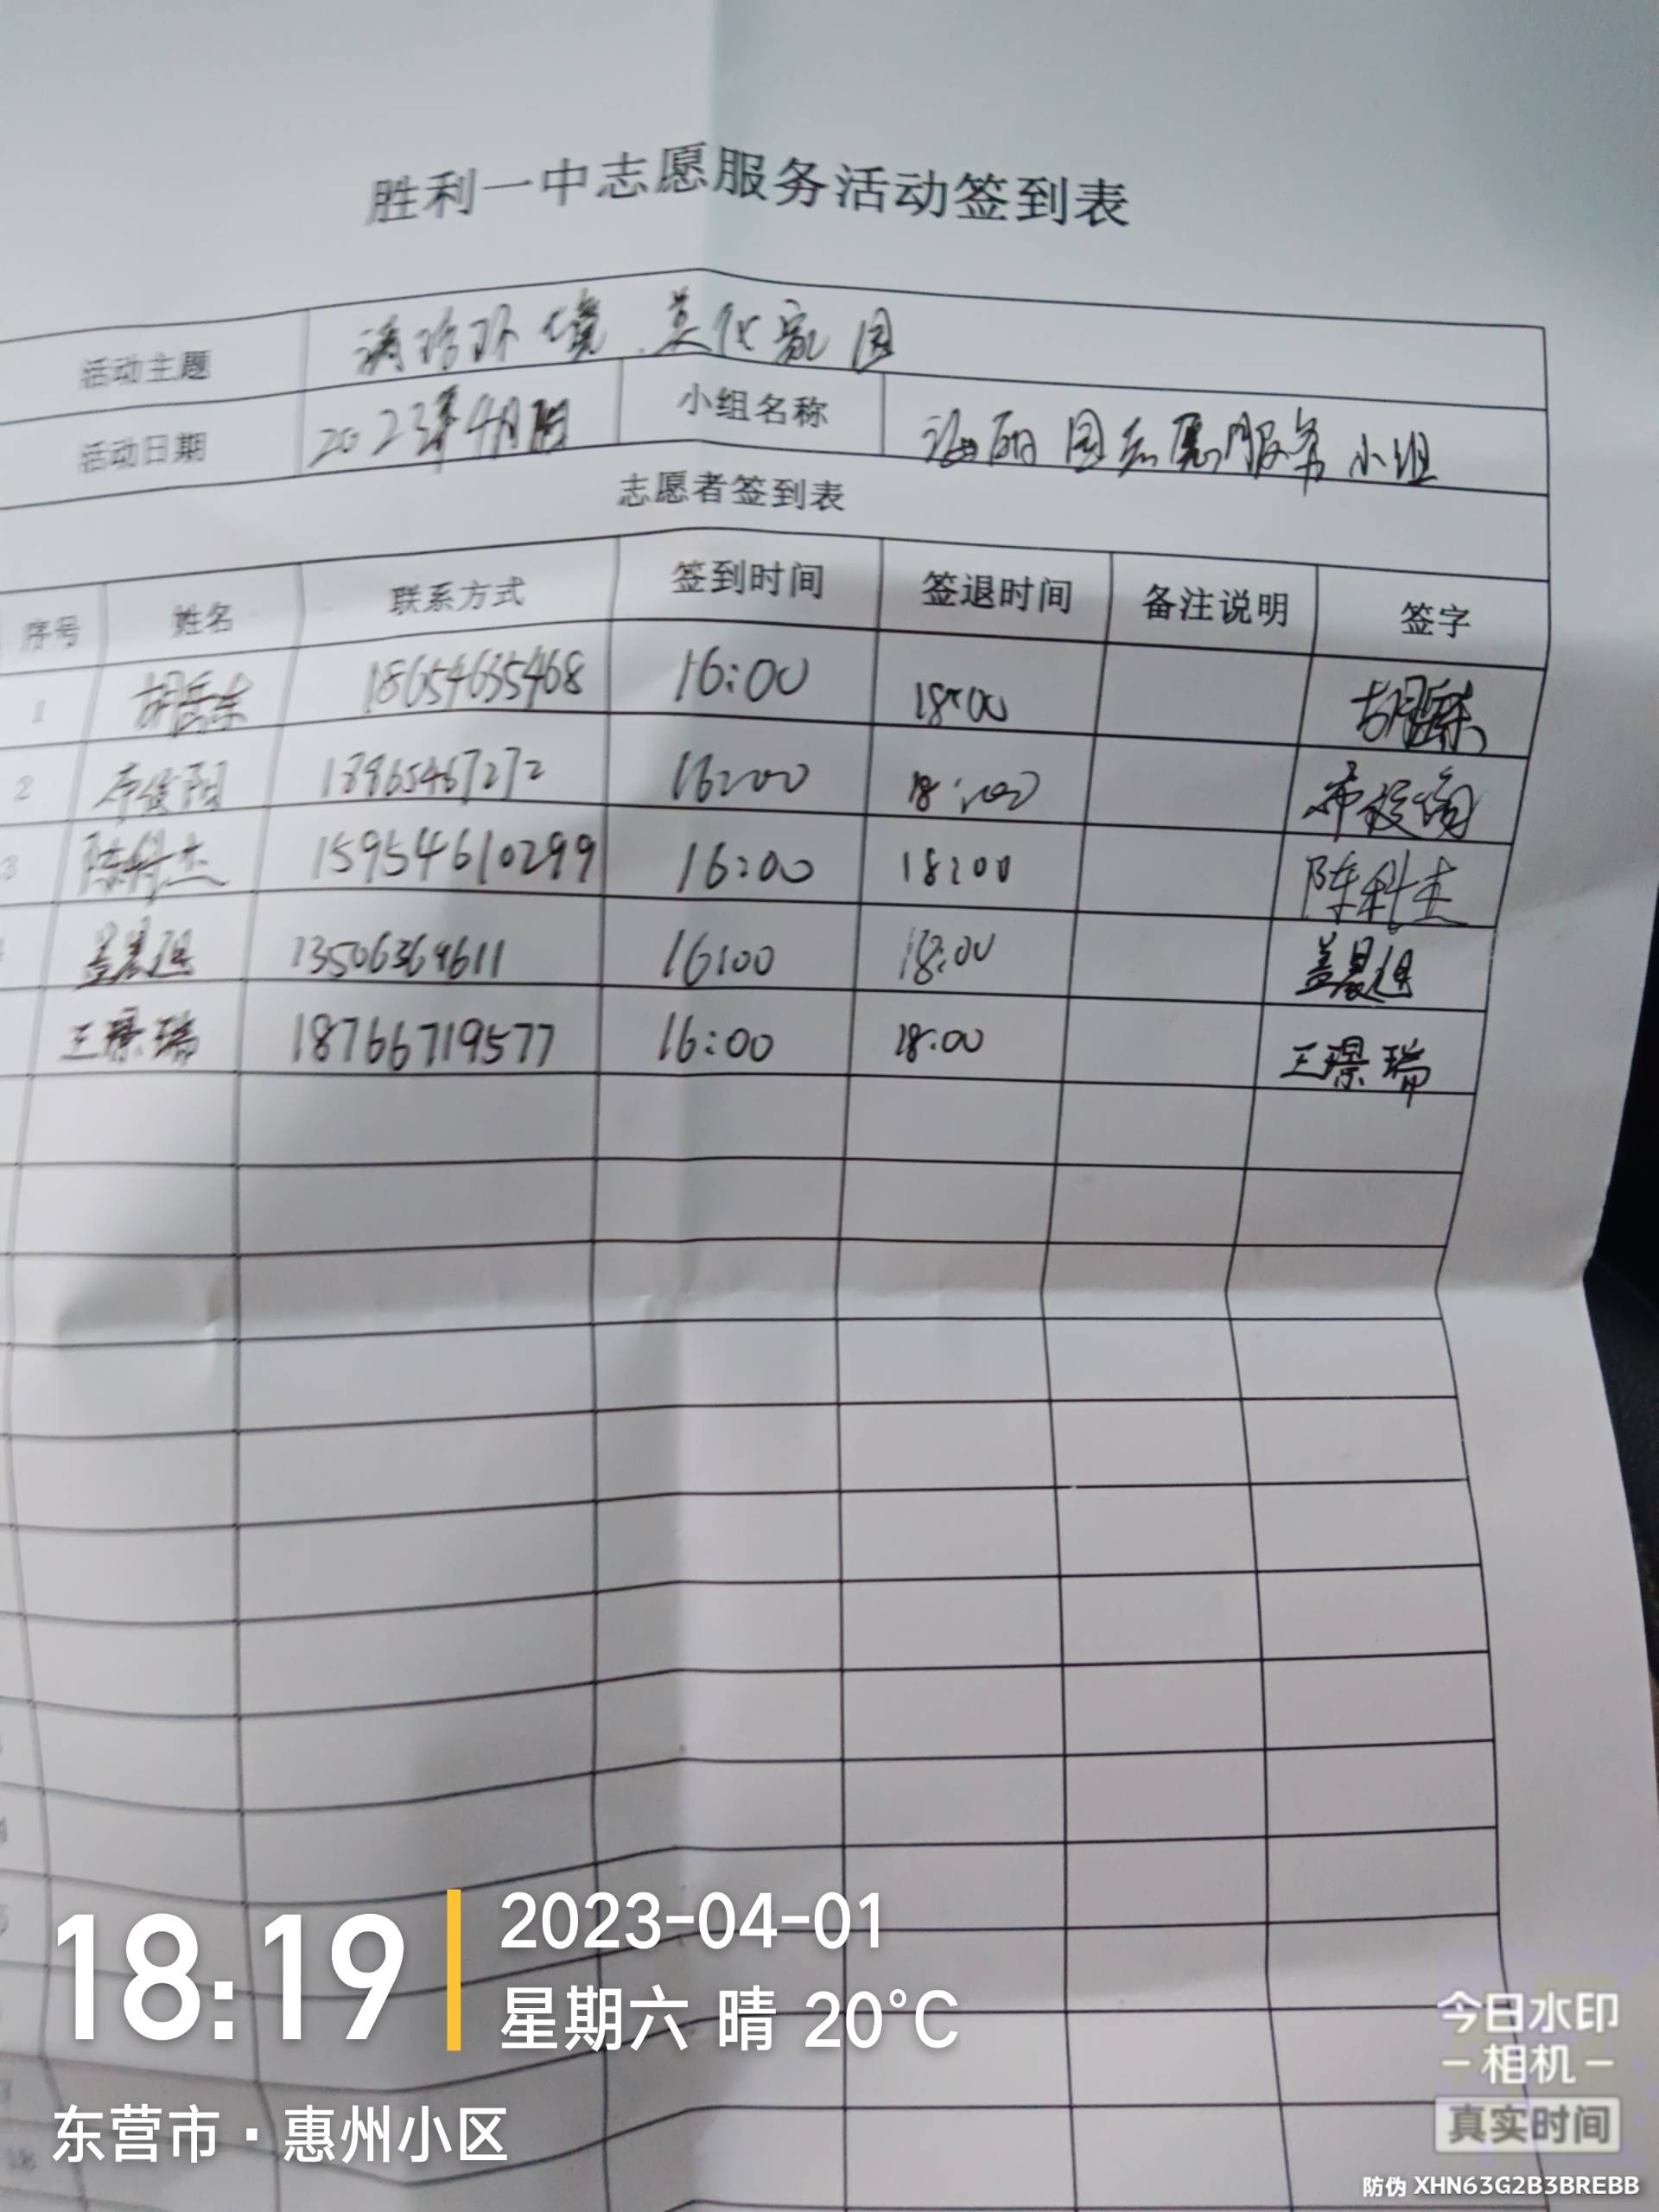 胜利一中志愿服务活动签到表
活动主题 清洁环境 美化家园
活动日期 2023年4月1日 小组名称 海丽园志愿服务小组
志愿者签到表
序号 姓名 联系方式 签到时间 签退时间 备注说明 签字
1 胡岳东 18654635468 16:00 18:00 胡岳东
2 18965467272 16:00 18:00
3 陈科杰 15954610299 16:00 18:00 陈科杰
盖晨旭 13506369611 16:00 18:00 盖晨旭
王璟瑞 18766719577 16:00 18:00 王璟瑞
18:19 2023-04-01
星期六 晴 20°C
东营市·惠州小区
今日水印
相机
真实时间
防伪 XHN63G2B3BREBB